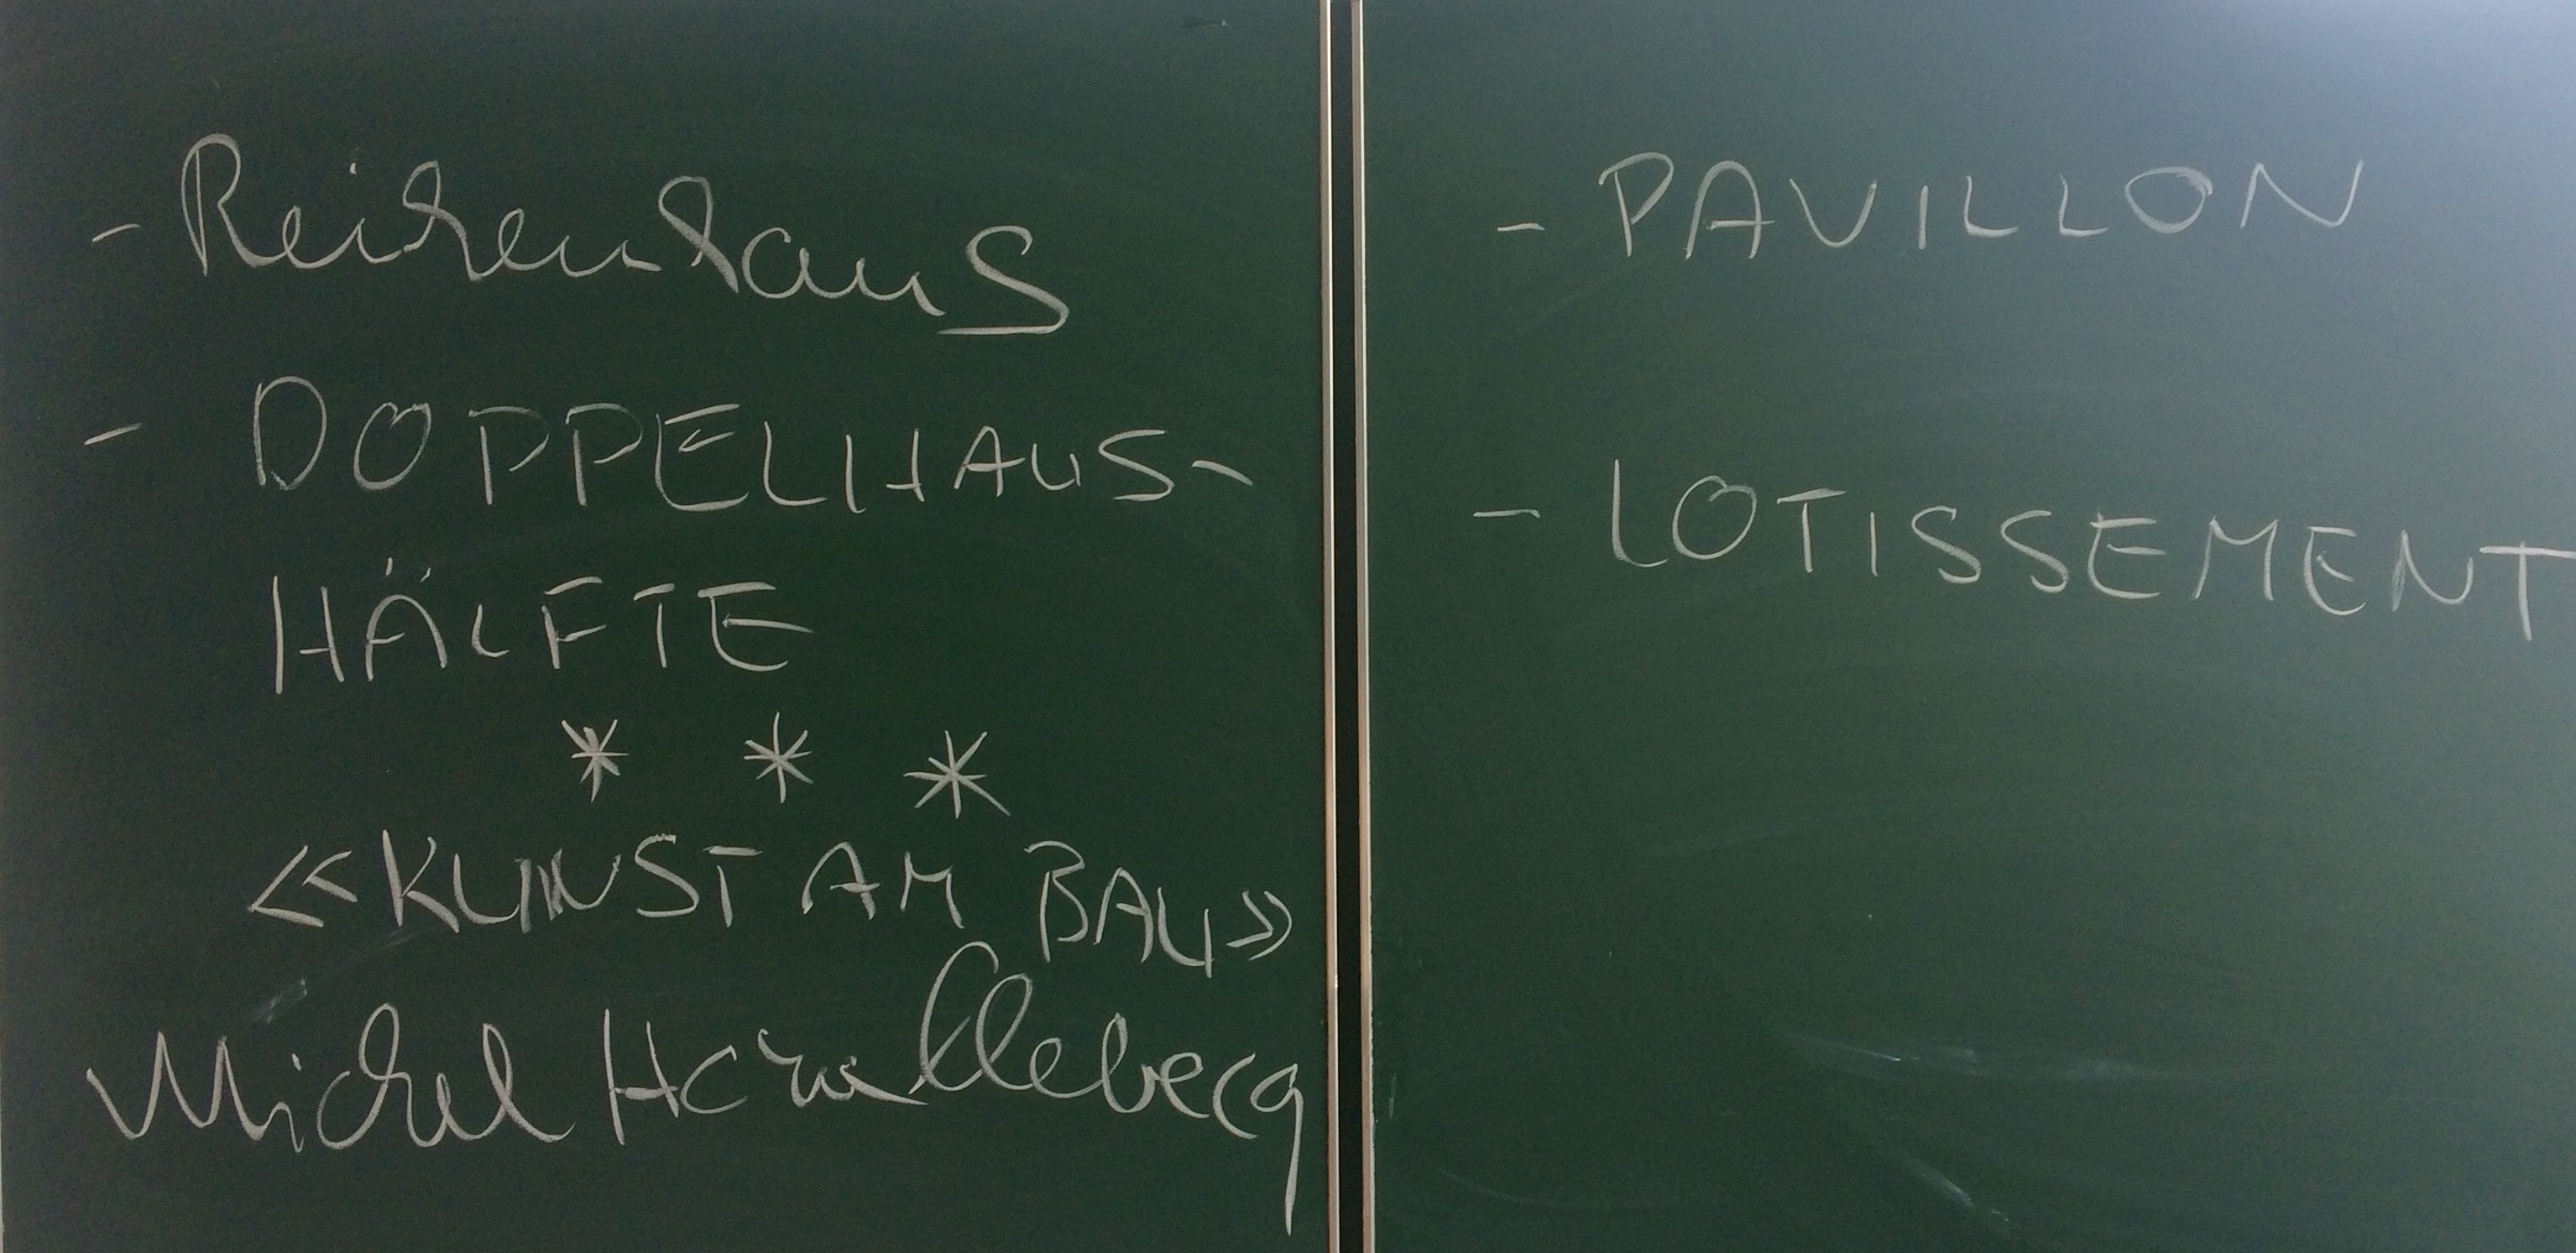 - Reihenhaus
- DOPPELHAUS-
HÄLFTE
* * *
«KUNST AM BAU»
Michel Houellebecq
- PAVILLON
- LOTISSEMENT